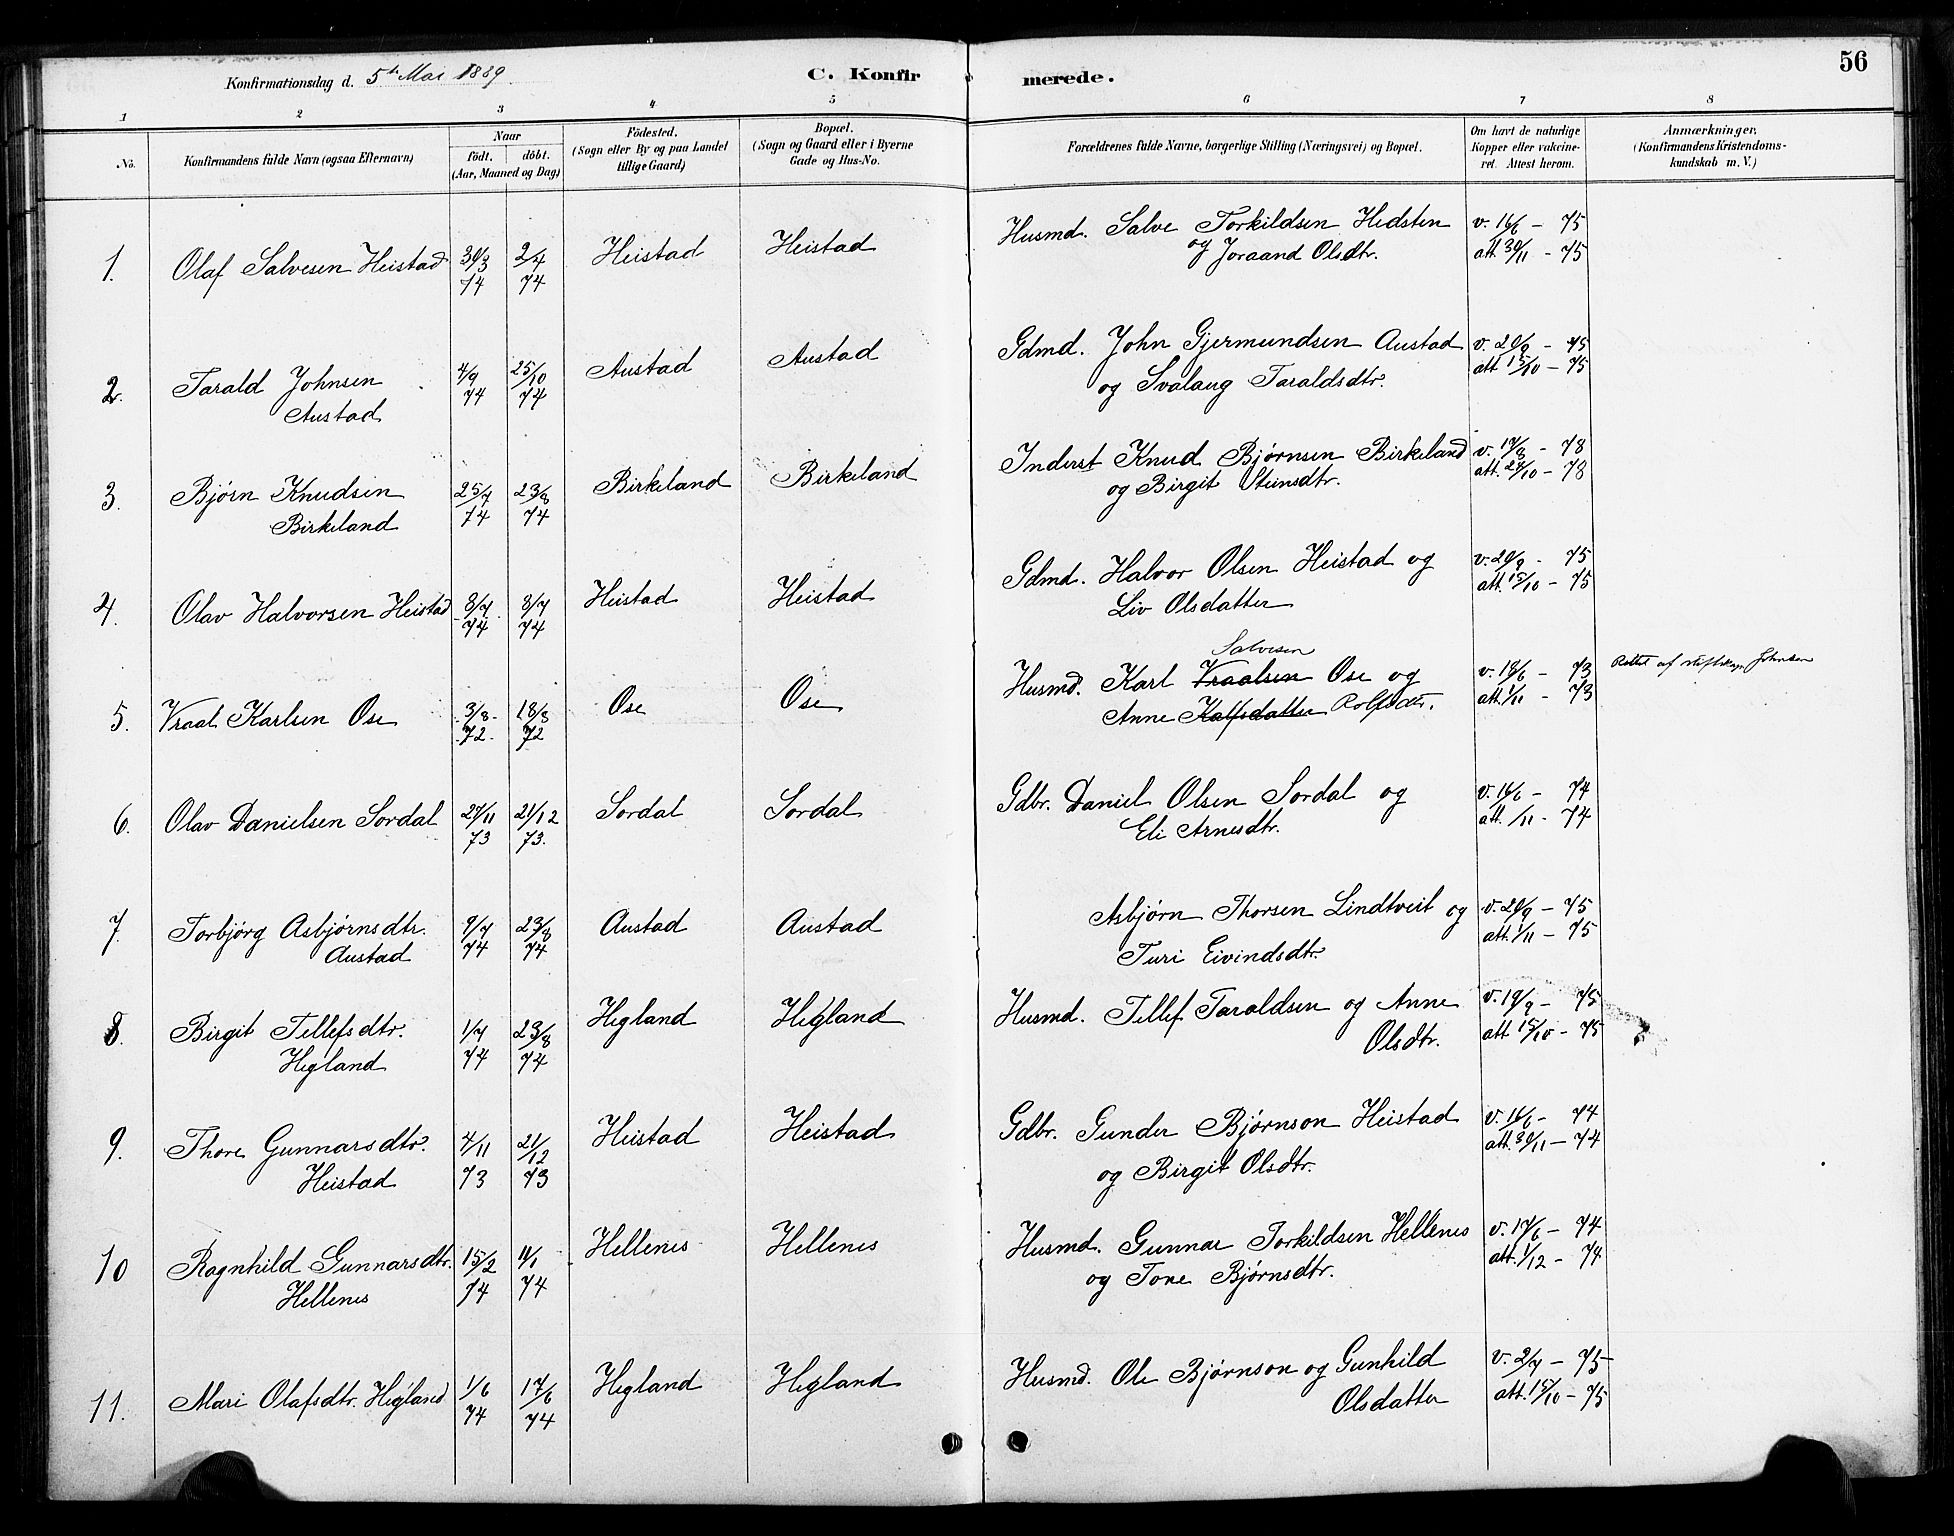 56
Konfirmationsdag d. 5te Mai 1889. C. Konfirmerede.
1 2 3 4 5 6 7 8
No. Konfirmandens fulde Navn (ogsaa Efternavn) Naar födt. döbt. (Aar, Maaned og Dag) Födested. (Sogn eller By og paa Landet tillige Gaard) Bopæl. (Sogn og Gaard eller i Byerne Gade og Hus-No. Forældrenes fulde Navne, borgerlige Stilling (Næringsvei) og Bopæl. Om havt de naturlige Kopper eller vakcineret. Attest herom. Anmærkninger, (Konfirmandens Kristendomskundskab m. V.)
1. Olaf Salvesen Heistad 30/3 74 2/4 74 Heistad Heistad Husmd. Salve Torkildsen Hedsten v. 16/6 - 75
og Joraand Olsdtr. att. 30/11 - 75
2. Tarald Johnsen 4/9 74 25/10 74 Austad Austad Gdmd. John Gjermundsen Austad v. 20/9 - 75
Austad og Svalaug Taraldsdtr. att 15/10 - 75
3. Bjørn Knudsen 25/7 74 23/8 74 Birkeland Birkeland Inderst Knud Bjørnsen Birkeland v. 17/8 - 78
Birkeland og Birgit Steinsdtr. att. 27/10 - 78
4. Olav Halvorsen Heistad 3/7 74 8/7 74 Heistad Heistad Gdmd. Halvor Olsen Heistad og v. 20/9 - 75
Liv Olsdatter att. 15/10 - 75
Salvesen
5. Vraal Karlsen Ose 3/8 72 18/8 72 Ose Ose Husmd. Karl Vraalsen Ose og v. 18/6 - 73 Rettet af Johnsen
Anne Kalfsdatter Rolfsdtr. att. 1/11 - 73
6. Olav Danielsen Sordal 27/11 73 21/12 73. Sordal Sordal Gdbr. Daniel Olsen Sordal og v. 16/6 - 74
Eli Arnesdtr. att. 1/11 - 74
7. Torbjørg Asbjørnsdtr. 9/7 74 23/8 74 Austad Austad Asbjørn Thorsen Lindtveit og v. 20/9 - 75
Austad Turi Eivindsdtr. att. 1/11 - 75
8. Birgit Tellefsdtr. 1/7 74 23/8 74 Hegland Hegland Husmd. Tellef Taraldsen og Anne v. 19/9 - 75
Hegland Olsdtr. att 15/10 - 75
9. Thore Gunnarsdtr. 4/11 73 21/12 73 Heistad Heistad Gdbr. Gunder Bjørnson Heistad v. 16/6 - 74
Heistad og Birgit Olsdtr. att. 30/11 - 74
10 Ragnhild Gunnarsdtr. 15/2 74 74 Hellenes Hellenes Husmd. Gunnar Torkildsen Hellenes v. 17/6 - 74
Hellenes og Tone Bjørnsdtr. att. 1/12 - 74
11. Mari Olafsdtr. Hegland 1/6 74 17/6 74 Hegland Hegland Husmd. Ole Bjørnson og Gunhild v. 2/7 - 75
Olsdatter att. 15/10 - 75